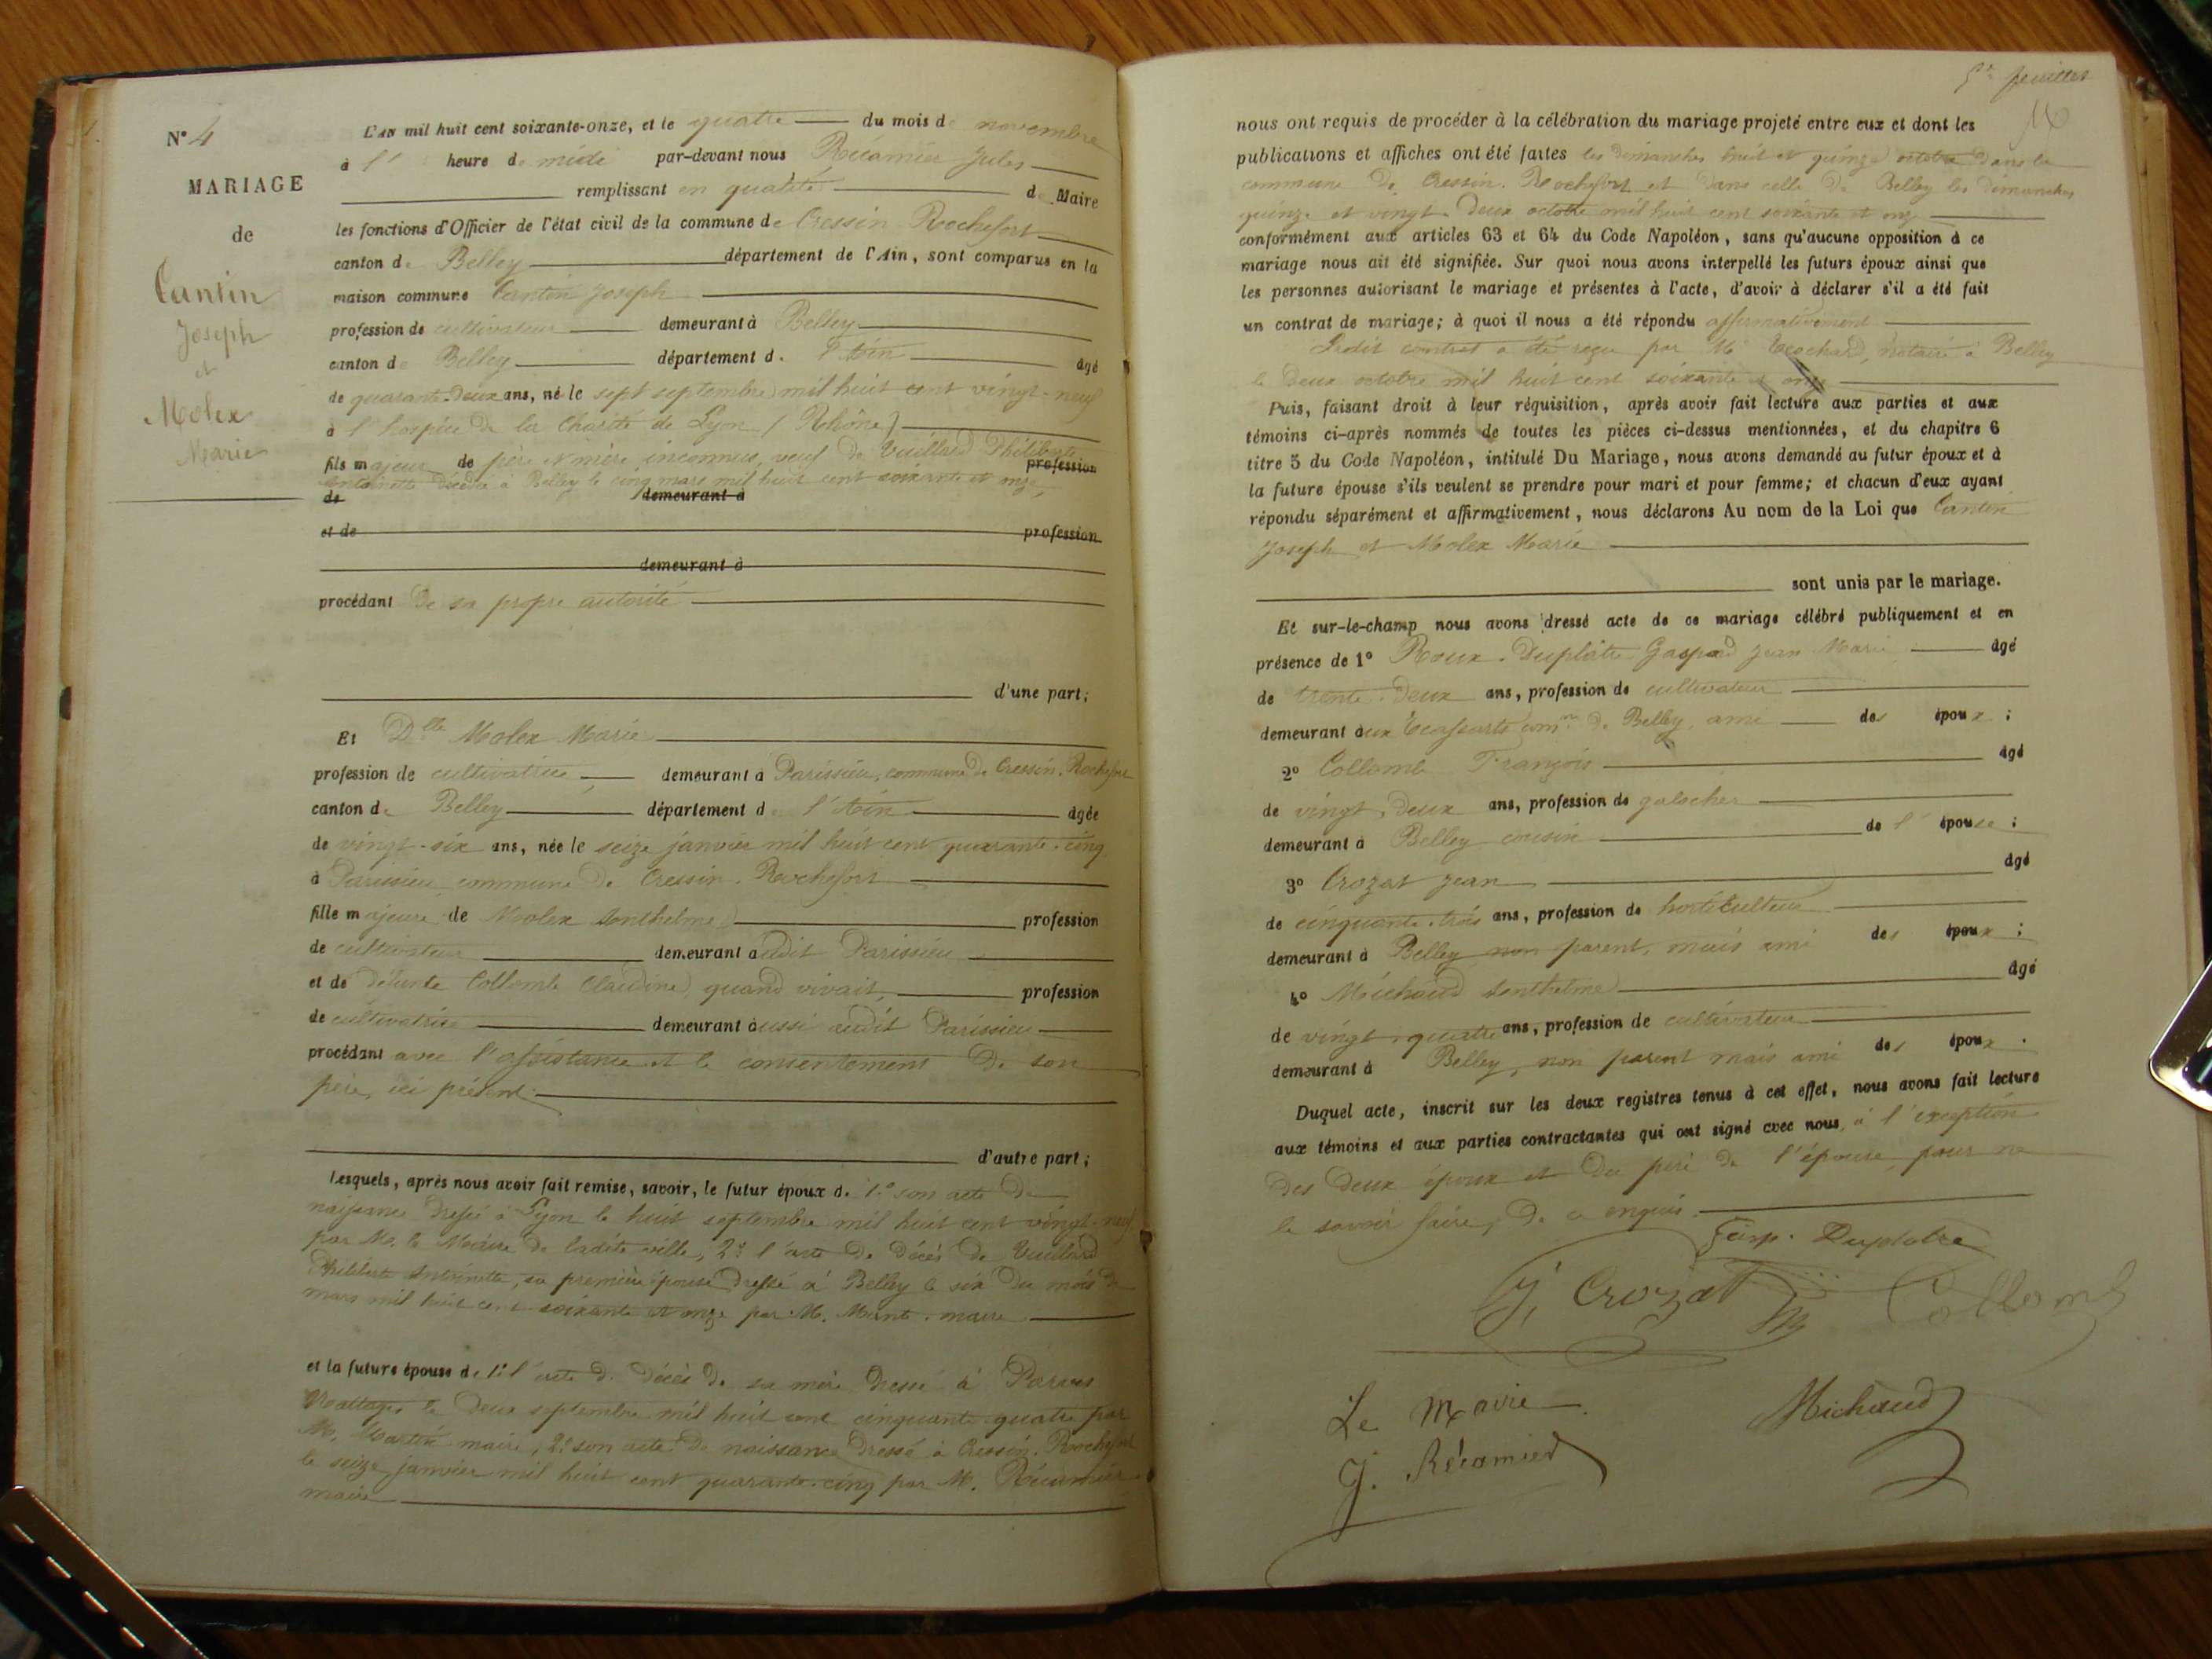 N° 4
MARIAGE
de
Cantin
Joseph
et
Molex
Marie
L'an mil huit cent soixante-onze, et le quatre du mois de novembre
à l' heure de midi par-devant nous Récamier Jules
remplissant en qualité de Maire
les fonctions d'Officier de l'état civil de la commune de Cressin Rochefort
canton de Belley département de l'Ain, sont comparus en la
maison commune Cantin Joseph
profession de cultivateur demeurant à Belley
canton de Belley département d. l'Ain âgé
de quarante-deux ans, né le sept septembre mil huit cent vingt-neuf
à l'hospice de la Charité de Lyon (Rhône)
fils majeur de père et mère inconnus, veuf de Vuillard Philiberte profession
Antoinette décédée à Belley le cinq mars mil huit cent soixante et onze,
de demeurant à
et de profession
demeurant à
procédant de sa propre autorité
d'une part;
Et Dlle Molex Marie
profession de cultivatrice demeurant à Parissieu, commune de Cressin-Rochefort
canton de Belley département d l'Ain âgée
de vingt-six ans, née le seize janvier mil huit cent quarante-cinq
à Parissieu commune de Cressin-Rochefort
fille majeure de Molex Anthelme profession
de cultivateur demeurant audit Parissieu
et de défunte Collomb Claudine, quand vivait, profession
de cultivatrice demeurant aussi audit Parissieu
procédant avec l'assistance et le consentement de son
père, ici présent
d'autre part;
Lesquels, après nous avoir fait remise, savoir, le futur époux d. 1° son acte de
naissance dressé à Lyon le huit septembre mil huit cent vingt-neuf
par M. le Maire de ladite ville, 2° l'acte de décès de Vuillard
Philiberte Antoinette, sa première épouse dressé à Belley le six du mois de
mars mil huit cent soixante et onze par M. maire
et la future épouse de 1° l'acte de décès de sa mère dressé à
le deux septembre mil huit cent cinquante-quatre par
M. Martin maire, 2° son acte de naissance dressé à Cressin-Rochefort
le seize janvier mil huit cent quarante-cinq par M. Récamier
maire
5e feuillet
16
nous ont requis de procéder à la célébration du mariage projeté entre eux et dont les
publications et affiches ont été faites les dimanches huit et quinze octobre dans la
commune de Cressin-Rochefort et dans celle de Belley les dimanches
quinze et vingt-deux octobre mil huit cent soixante et onze
conformément aux articles 63 et 64 du Code Napoléon, sans qu'aucune opposition à ce
mariage nous ait été signifiée. Sur quoi nous avons interpellé les futurs époux ainsi que
les personnes autorisant le mariage et présentes à l'acte, d'avoir à déclarer s'il a été fait
un contrat de mariage; à quoi il nous a été répondu affirmativement
Ledit contrat a été reçu par Me notaire à Belley
le deux octobre mil huit cent soixante et onze
Puis, faisant droit à leur réquisition, après avoir fait lecture aux parties et aux
témoins ci-après nommés de toutes les pièces ci-dessus mentionnées, et du chapitre 6
titre 5 du Code Napoléon, intitulé Du Mariage, nous avons demandé au futur époux et à
la future épouse s'ils veulent se prendre pour mari et pour femme; et chacun d'eux ayant
répondu séparément et affirmativement, nous déclarons Au nom de la Loi que Cantin
Joseph et Molex Marie
sont unis par le mariage.
Et sur-le-champ nous avons dressé acte de ce mariage célébré publiquement et en
présence de 1° Roux-Duplâtre Gaspard Jean Marie âgé
de trente-deux ans, profession de cultivateur
demeurant aux Ecassarts comne de Belley, ami des époux;
2° Collomb François âgé
de vingt-deux ans, profession de galocher
demeurant à Belley cousin de l'épouse;
3° Crozat Jean âgé
de cinquante-trois ans, profession de horticulteur
demeurant à Belley non parent, mais ami des époux;
4° Michaud Anthelme âgé
de vingt-quatre ans, profession de cultivateur
demeurant à Belley, non parent mais ami des époux.
Duquel acte, inscrit sur les deux registres tenus à cet effet, nous avons fait lecture
aux témoins et aux parties contractantes qui ont signé avec nous, à l'exception
des deux époux et du père de l'épouse, pour ne
le savoir faire, de ce enquis.
Gasp. Duplatre
J. Crozat
Collomb
Le Maire
J. Récamier
Michaud